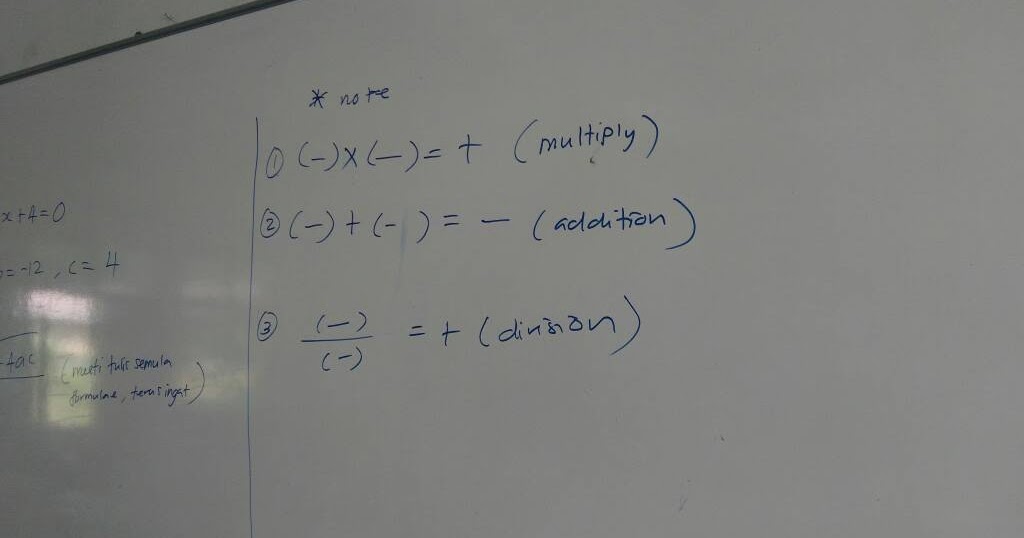 * note
① (-)×(-)=+ (multiply)
② (-)+(-)=- (addition)
③ (-)/(-) =+ (division)
x+4=0
=-12, c=4
4ac
(mesti tulis semula
formulae, terus ingat)